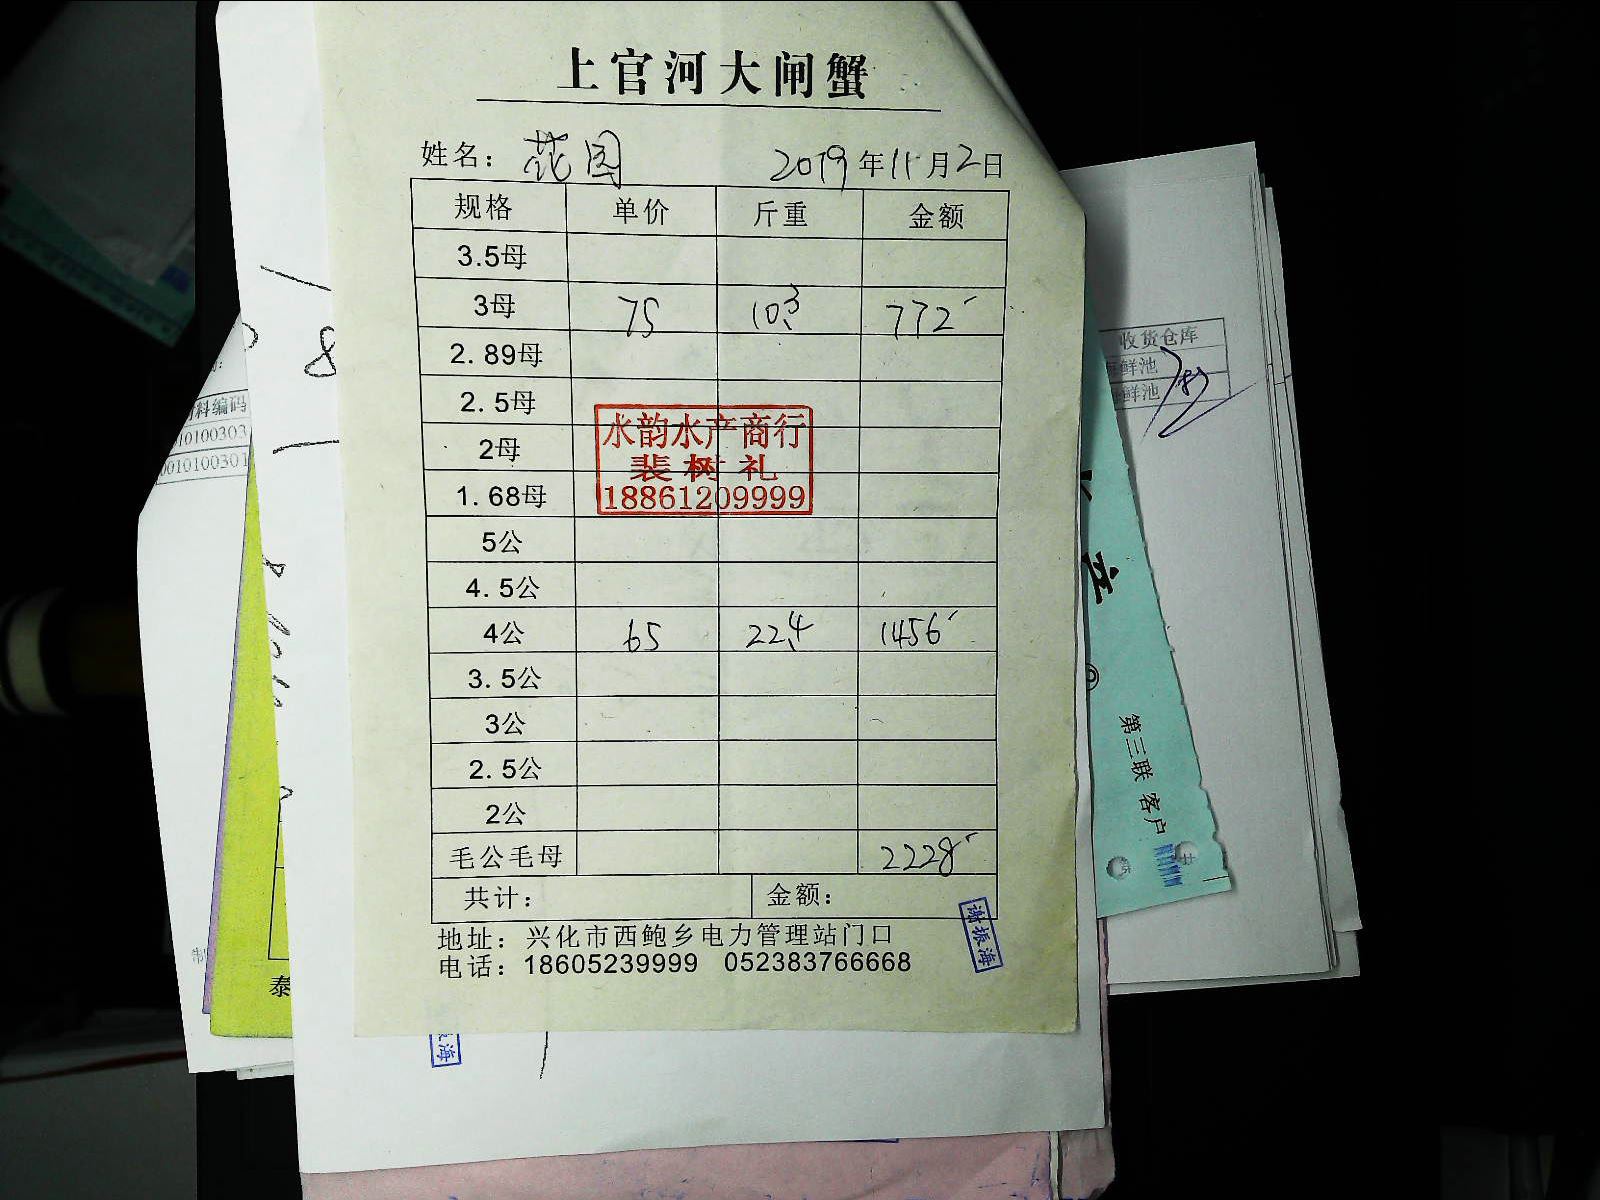 上官河大闸蟹
姓名：花园 2019年11月2日
规格 单价 斤重 金额
3.5母
3母 75 10.3 772
2.89母
2.5母
2母
1.68母
水韵水产商行
裴树礼
18861209999
5公
4.5公
4公 65 22.4 1456
3.5公
3公
2.5公
2公
毛公毛母 2228
共计： 金额：
地址：兴化市西鲍乡电力管理站门口
电话：18605239999 052383766668
谢振海
料编码
10100303
0010100301
8
泰
海
收货仓库
鲜池
鲜池
产
第三联 客户